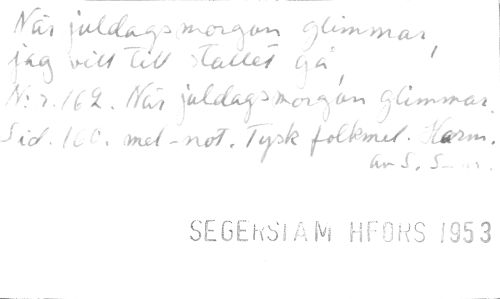 När juldagsmorgon glimmar,
jag vill till stallet gå
N:r. 162. När juldagsmorgon glimmar.
Sid. 160. mel-not. Tysk folkmel. Harm.
av S.
SEGERSTAM HFORS 1953